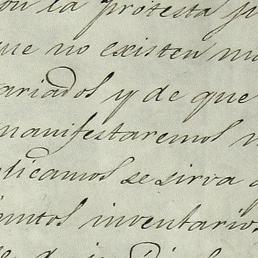 la protesta
que no existen
ariados y de que
manifestaremos
licamos se sirva
inventarios